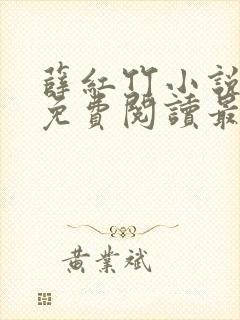 薛紅竹小說
免費閱讀最
黃業斌